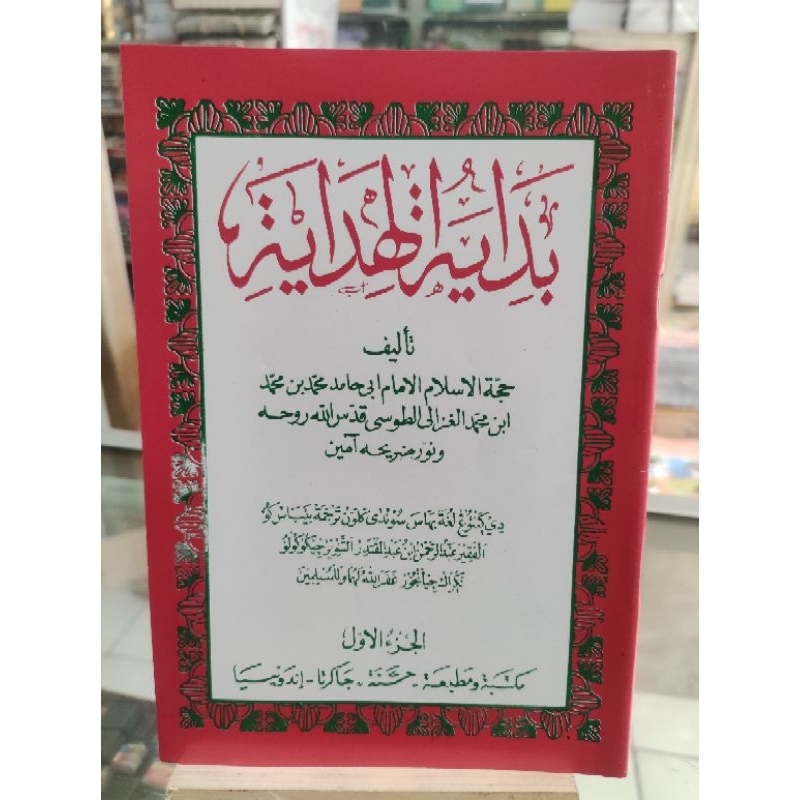 بِدَايَةُ الْهِدَايَةِ
تأليف
حجّة الاسلام الامام ابى حامد محمّد بن محمّد
ابن محمّد الغزالى الطوسى قدّس الله روحـه
ونوّر ضريحه آمين
لغة بهاس سوندى كلون ترجمة بيباس كو
الفقير عبد الرحمن ابن عبد القادر
غفر الله لهما وللمسلمين
الجزء الاول
مكتبة ومطبعة - جاكرتا - إندونيسيا